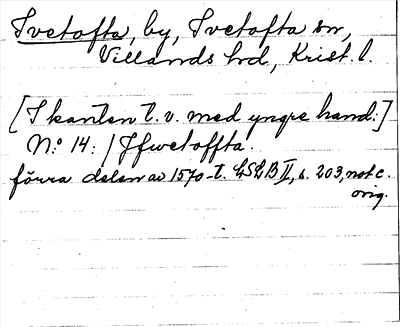 Ivetofta, by, Ivetofta sn,
Villands hd, Krist. l.
[I kanten t. v. med yngre hand:]
N:o 14: / Jffwetoffta.
förra delen av 1570-t. LSLB II, s. 203, not c.
orig.